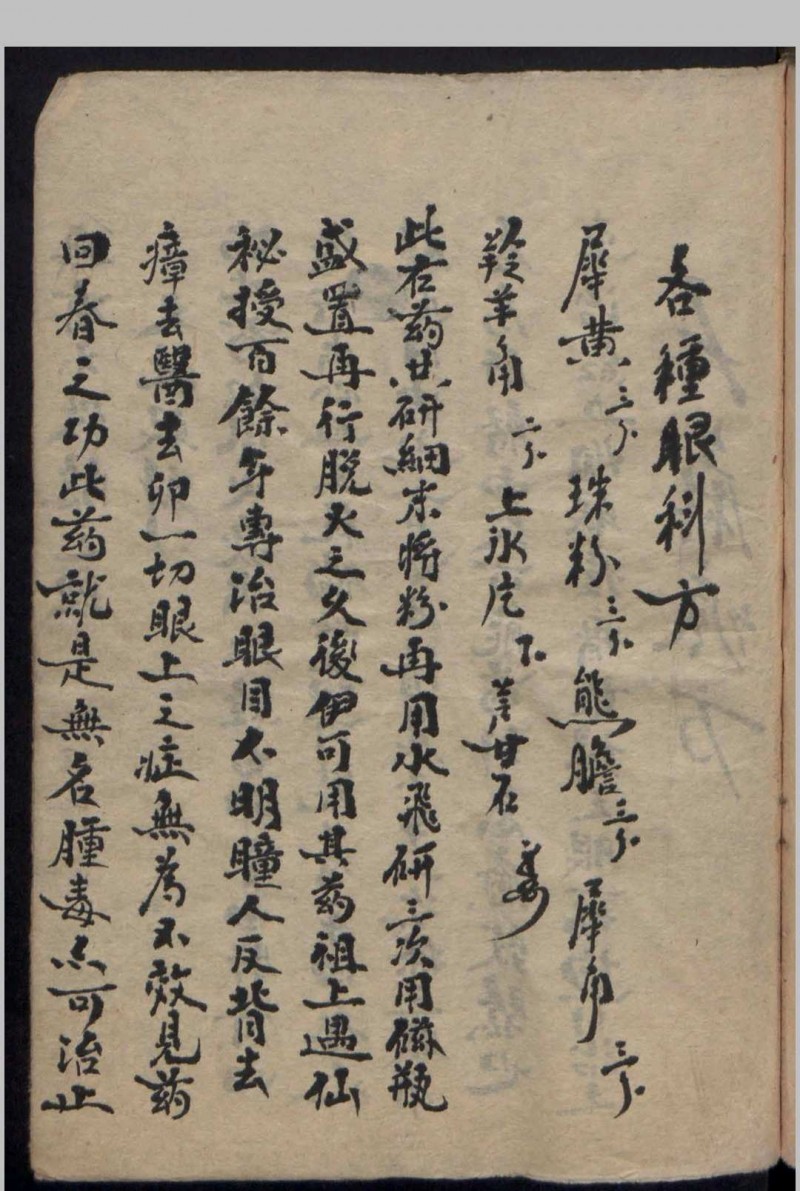 各種眼科方
犀黄三分珠粉三分熊膽三分犀角三分
羚羊角三分上氷片下芦甘石
此右葯共研細末将粉再用水飛研三次用磁瓶
盛置再行脱火之久後伊可用其葯祖上遇仙
秘授百餘年專治眼目不明瞳人反背去
瘴去醫去卯一切眼上之症無為不效見葯
回春之功此葯就是無名腫毒点可治止